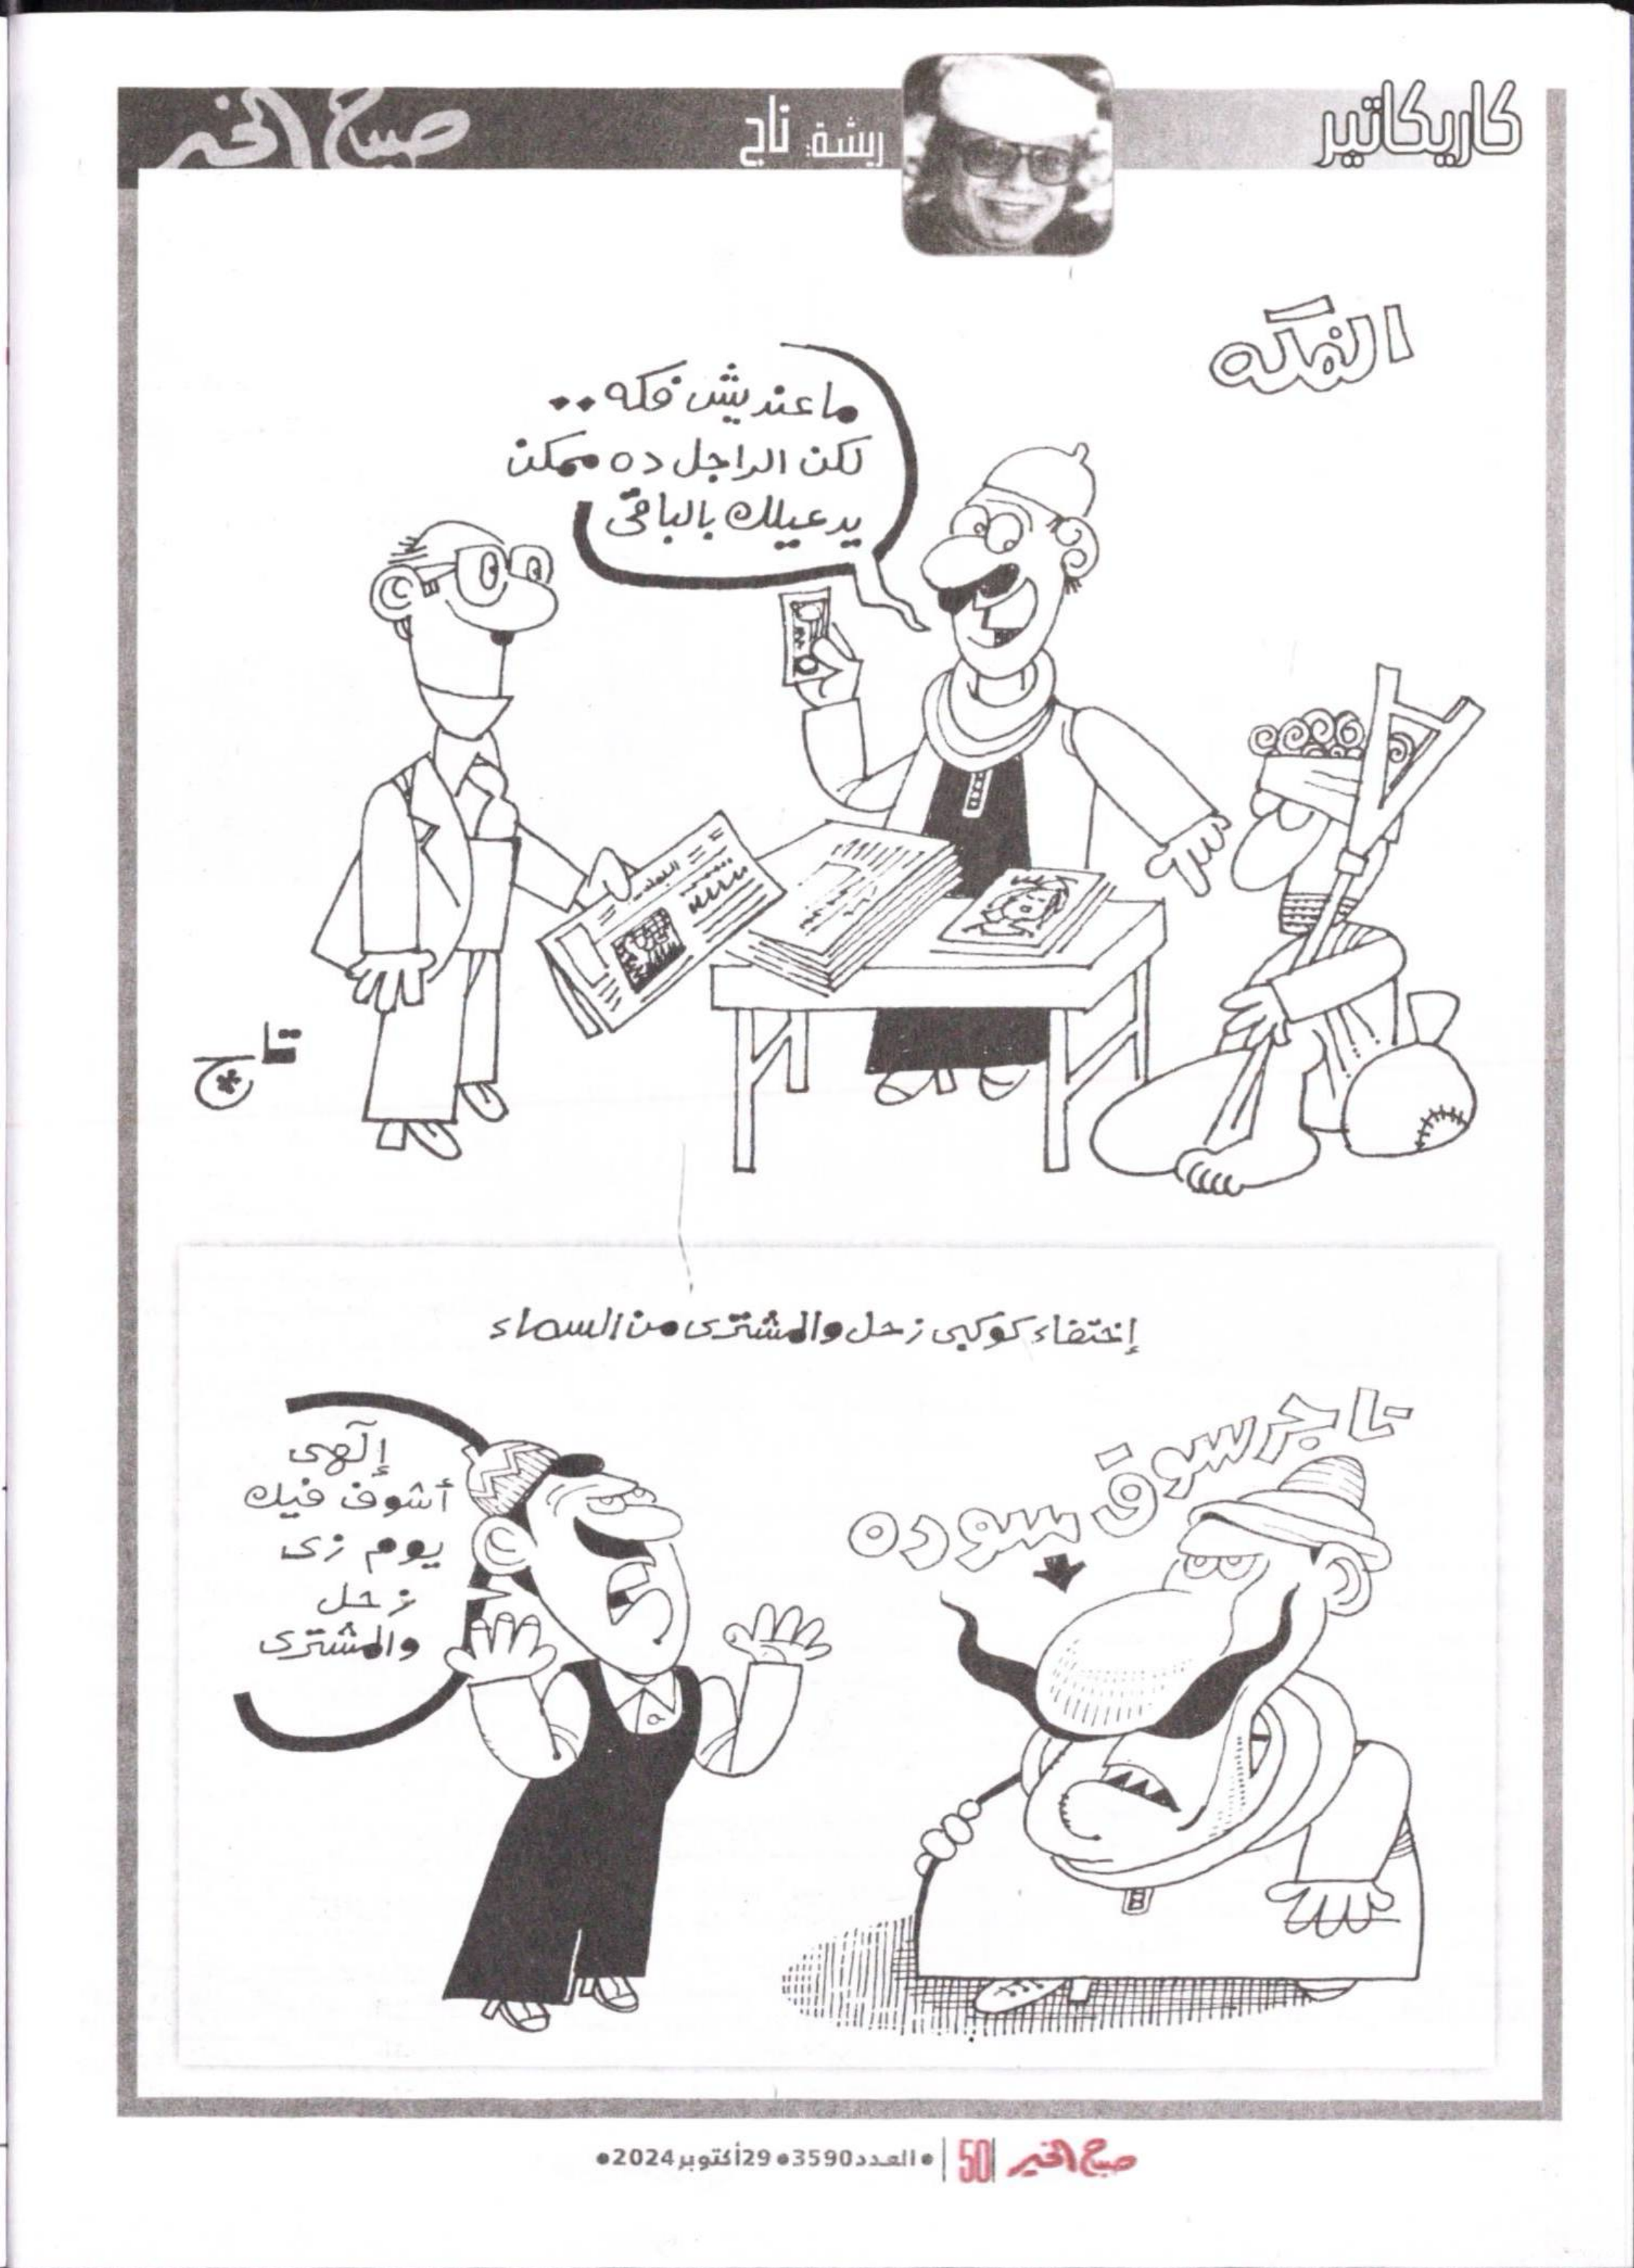 كاريكاتير
ريشة: تاج
صباح الخير
الفكه
ما عنديش فكه..
لكن الراجل ده ممكن
يدعيلك بالباقى
تاج
إختفاء كوكبى زحل والمشترى من السماء
تاجر سوق سوده
إلهى
أشوف فيك
يوم زى
زحل
والمشترى
صباح الخير 50 • العدد 3590 • 29 أكتوبر 2024 •